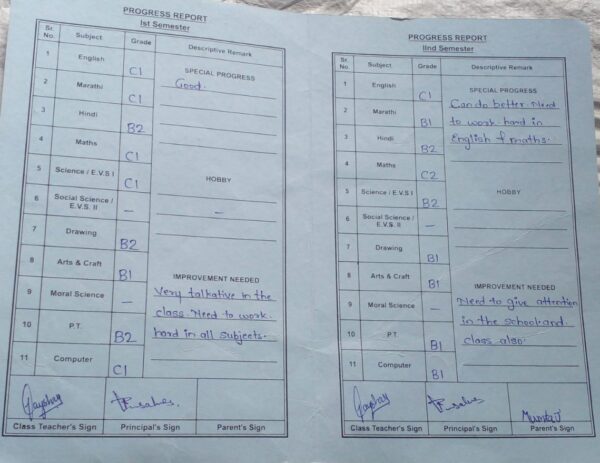 PROGRESS REPORT
Ist Semester
Sr. No. Subject Grade Descriptive Remark
1 English C1
2 Marathi C1
3 Hindi B2
4 Maths C1
5 Science / E.V.S I C1
6 Social Science / E.V.S. II –
7 Drawing B2
8 Arts & Craft B1
9 Moral Science –
10 P.T. B2
11 Computer C1
SPECIAL PROGRESS
Good.
HOBBY
–
IMPROVEMENT NEEDED
Very talkative in the
class Need to work
hard in all subjects.
Class Teacher's Sign Principal's Sign Parent's Sign
PROGRESS REPORT
IInd Semester
Sr. No. Subject Grade Descriptive Remark
1 English C1
2 Marathi B1
3 Hindi B2
4 Maths C2
5 Science / E.V.S I B2
6 Social Science / E.V.S. II –
7 Drawing B1
8 Arts & Craft B1
9 Moral Science –
10 P.T. B1
11 Computer B1
SPECIAL PROGRESS
Can do better Need
to work hard in
English & maths.
HOBBY
IMPROVEMENT NEEDED
Need to give attention
in the school and
class also.
Class Teacher's Sign Principal's Sign Parent's Sign